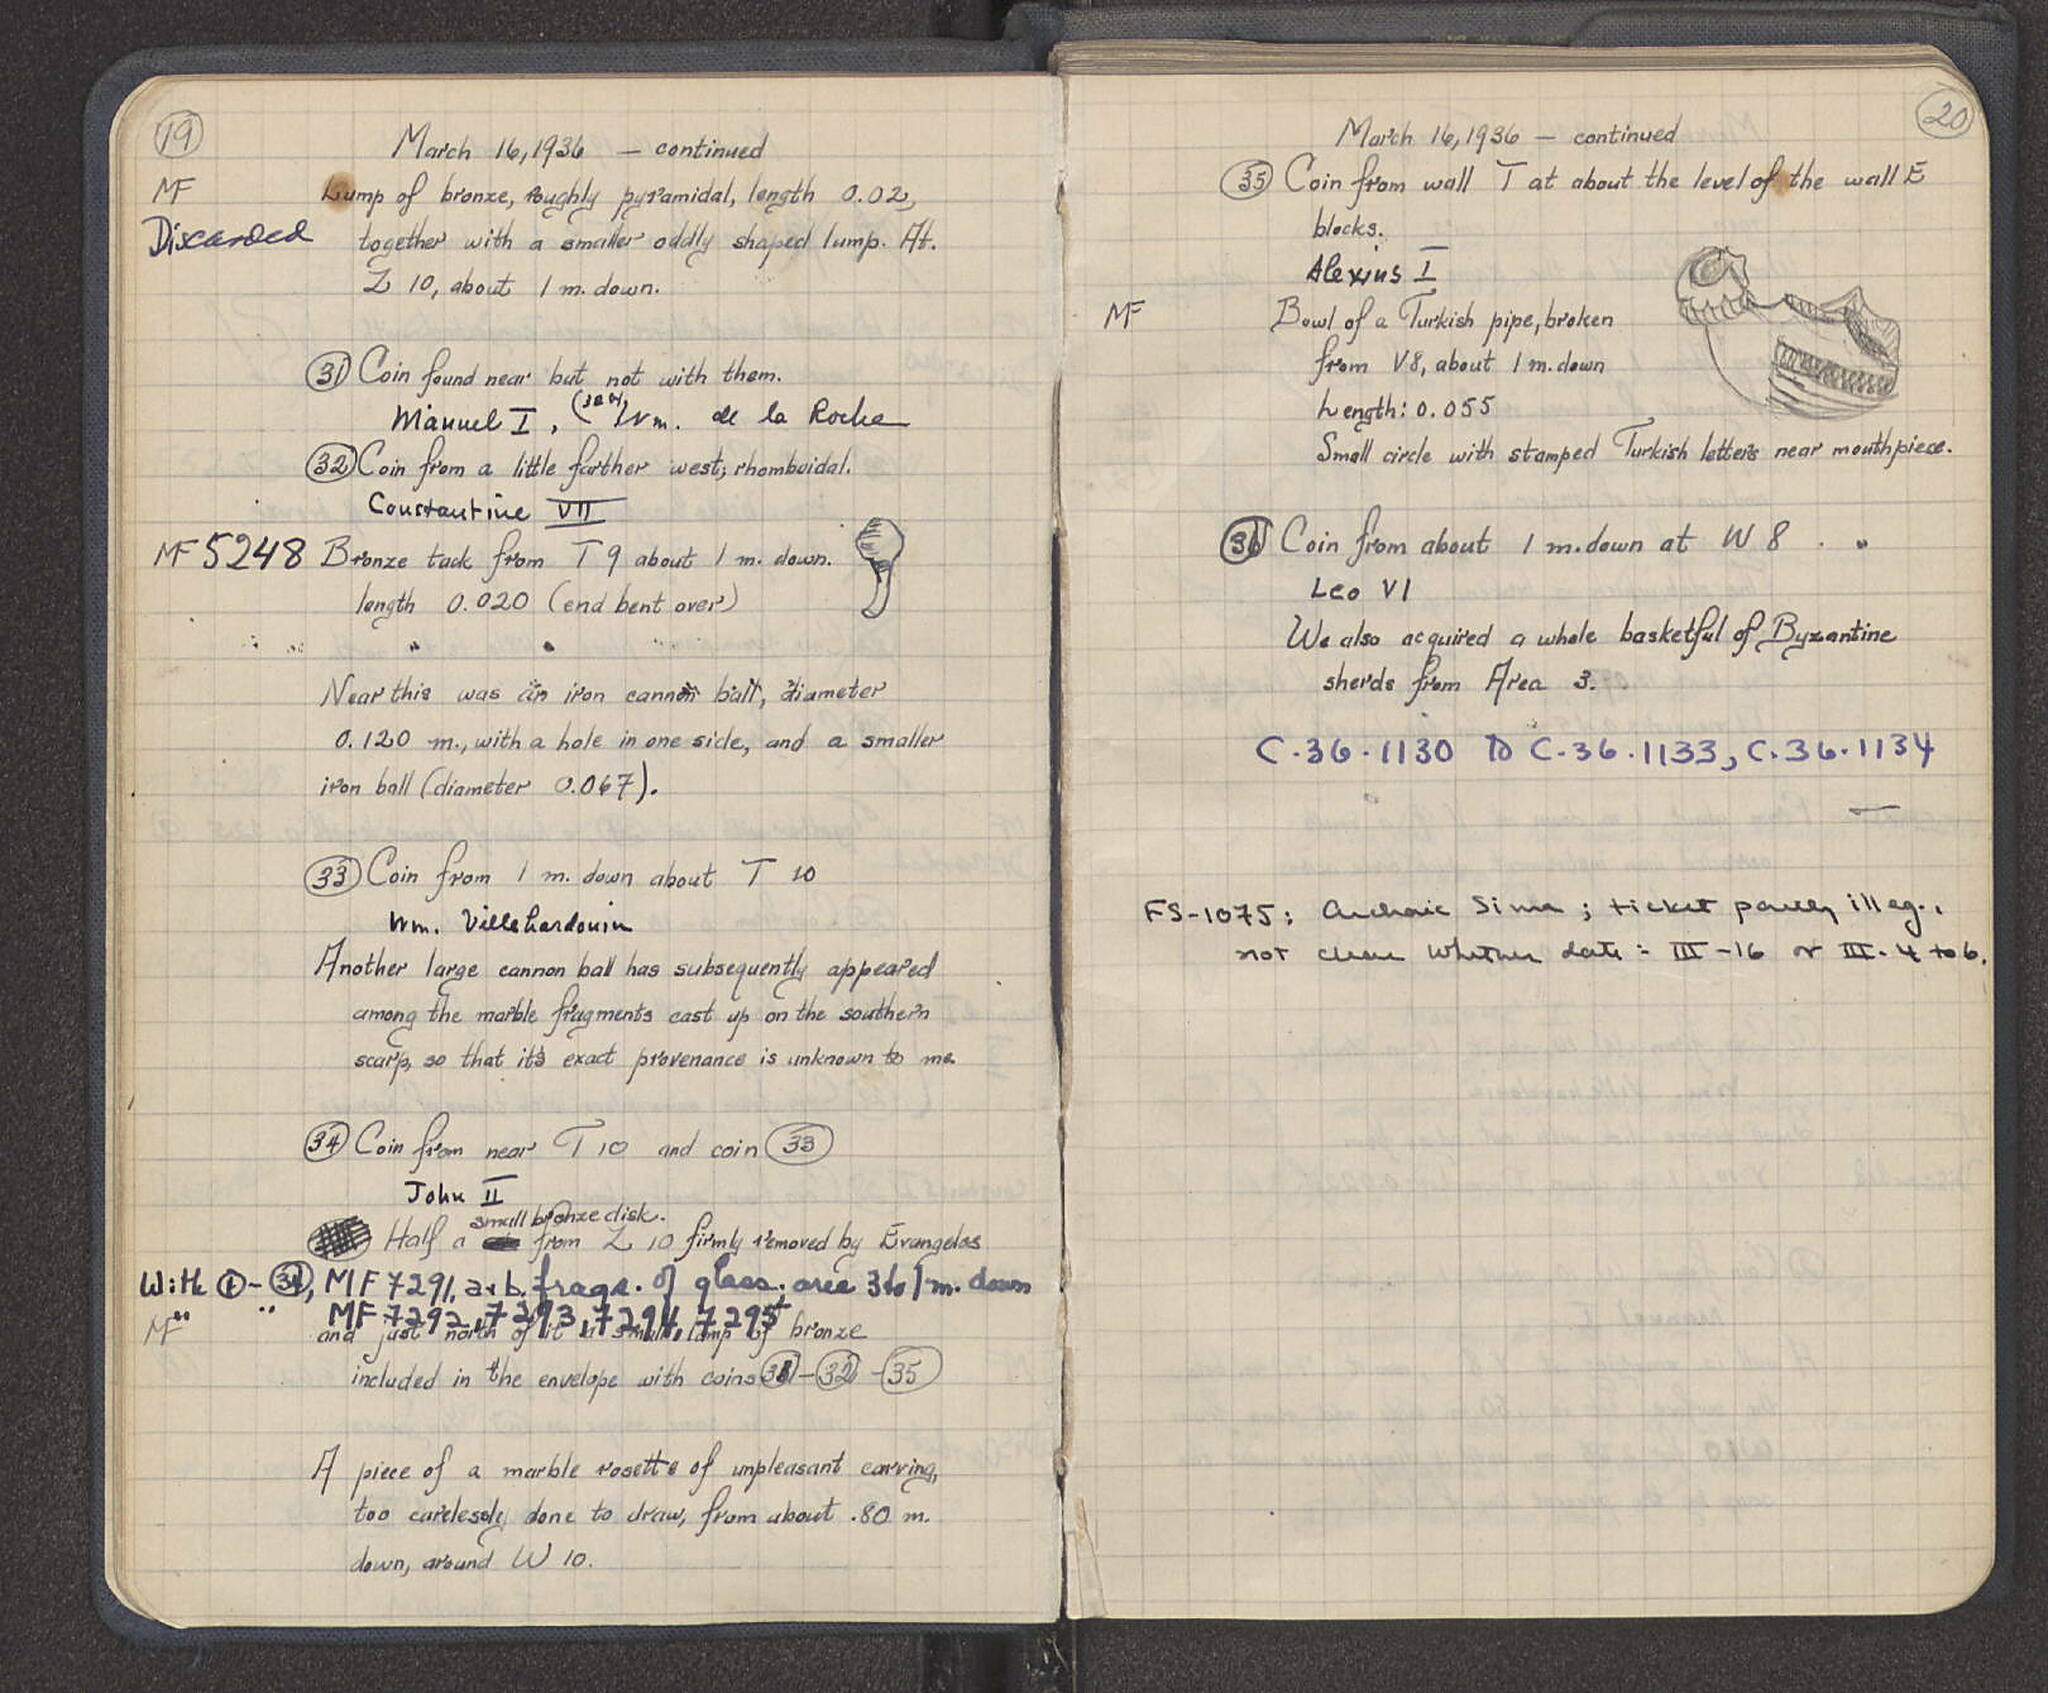 19
March 16, 1936 — continued
MF Lump of bronze, roughly pyramidal, length 0.02,
Discarded together with a smaller oddly shaped lump. At.
Z 10, about 1 m. down.
31 Coin found near but not with them.
Manuel I, Wm. de la Roche
32 Coin from a little farther west; rhomboidal.
Constantine VII
MF 5248 Bronze tack from T 9 about 1 m. down.
length 0.020 (end bent over)
Near this was an iron cannon ball, diameter
0.120 m., with a hole in one side, and a smaller
iron ball (diameter 0.067).
33 Coin from 1 m. down about T 10
Wm. Villehardouin
Another large cannon ball has subsequently appeared
among the marble fragments cast up on the southern
scarp, so that it's exact provenance is unknown to me.
34 Coin from near T 10 and coin 33
John II
small bronze disk.
Half a from Z 10 firmly removed by Evangelos
With - , MF 7291, a+b. frags. of glass; area 3 to 1 m. down
" " MF 7292, 7293, 7294, 7295
MF and just north of it a small lump of bronze
included in the envelope with coins 31 - 32 - 35
A piece of a marble rosette of unpleasant carving,
too carelessly done to draw, from about .80 m.
down, around W 10.
20
March 16, 1936 — continued
35 Coin from wall T at about the level of the wall E
blocks.
Alexius I
MF Bowl of a Turkish pipe, broken
from V8, about 1 m. down
Length: 0.055
Small circle with stamped Turkish letters near mouthpiece.
36 Coin from about 1 m. down at W 8
Leo VI
We also acquired a whole basketful of Byzantine
sherds from Area 3.
C.36.1130 to C.36.1133, C.36.1134
FS-1075: Archaic Sima; ticket partly illeg.,
not clear whether date = III-16 or III. 4 to 6.